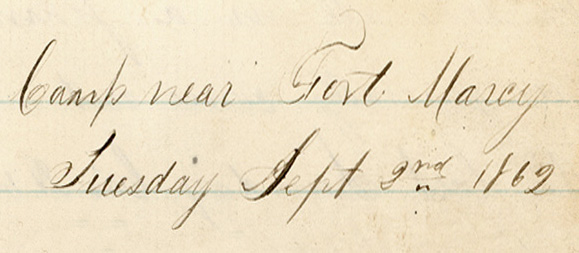 Camp near Fort Marcy
Tuesday Sept 2nd 1862